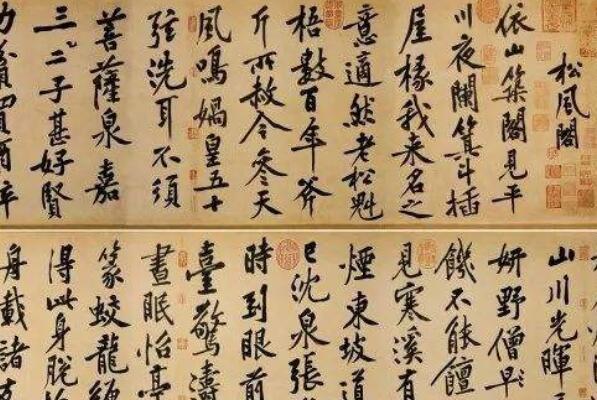 松風閣
依山築閣見平
川夜闌箕斗插
屋椽我来名之
意適然老松魁
梧數百年斧
斤所赦今參天
風鳴媧皇五十
弦洗耳不須
菩薩泉嘉
三二子甚好賢
力貧買酒醉
山川光暉
妍野僧早
饑不能饘
見寒溪有
煙東坡道
已沈泉張
時到眼前
臺驚濤
晝眠怡亭
篆蛟龍纏
得此身脫
身載諸友